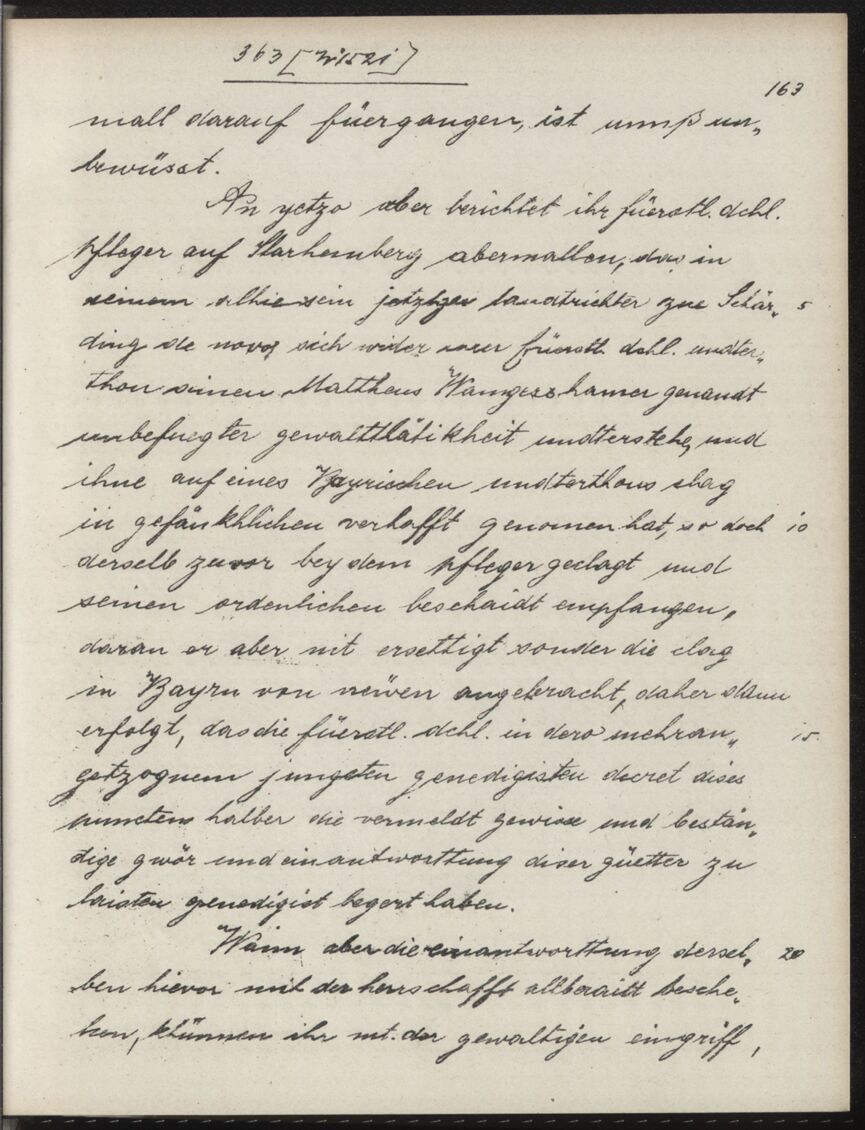 363 [Zi 1521]
163
mall darauf füergangen, ist unnß un„
bewüsst.
An yetzo aber berichtet ihr füerstl. dchl.
pfleger auf Starhemberg abermallen, das in
seinem alhiesein jetztger landtrichter zue Schär„ 5
ding de novo sich wider irer füerstl. dchl. undter„
thon einen Mattheus Wamgesshamer genandt
unbefuegter gewalttlätikheit undterstehe, und
ihne auf eines Bayrischen undterthons clag
in gefänkhlichen verhafft genomen hat, so doch 10
derselb zuvor bey dem pfleger geclagt und
seinen ordenlichen beschaidt empfangen,
daran er aber nit ersettigt sonder die clag
in Bayrn von newen angebracht, daher dann
erfolgt, das die füerstl. dchl. in dero mehran„ 15
getzognem jungsten genedigisten decret dises
puncten halber die vermeldt gewisse und bestän„
dige gwör und einantworttung diser güetter zu
laisten genedigist begert haben.
Wann aber die einantworttung dersel„ 20
ben hievor mit der herrschafft allberaitt besche„
hen, khünnen ihr mt. der gewaltigen eingriff,